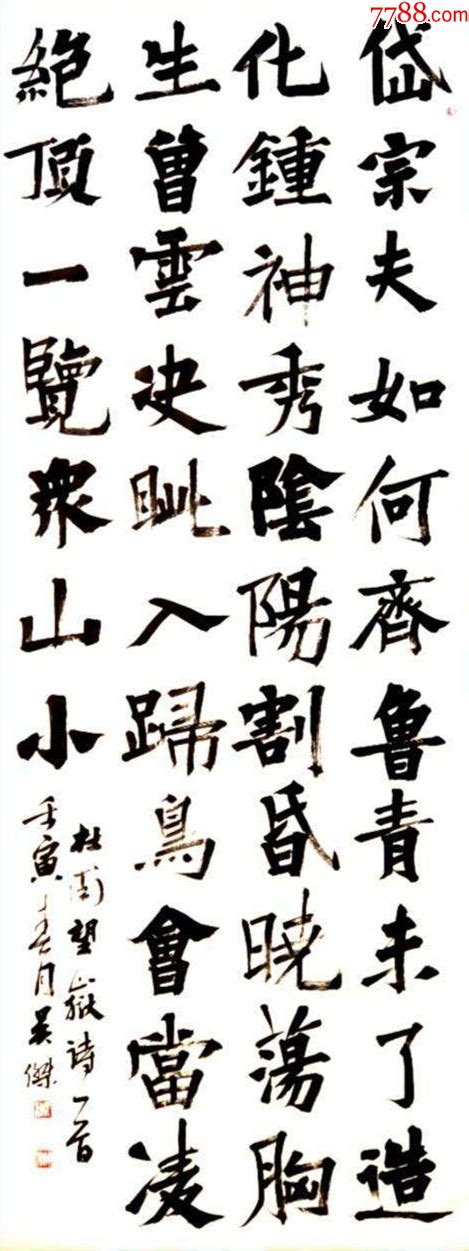 7788.com
岱宗夫如何齊魯青未了造
化鍾神秀陰陽割昏曉蕩胸
生曾雲决眦入歸鳥會當凌
絶頂一覽眾山小
杜甫望嶽詩一首
壬寅春月吴傑